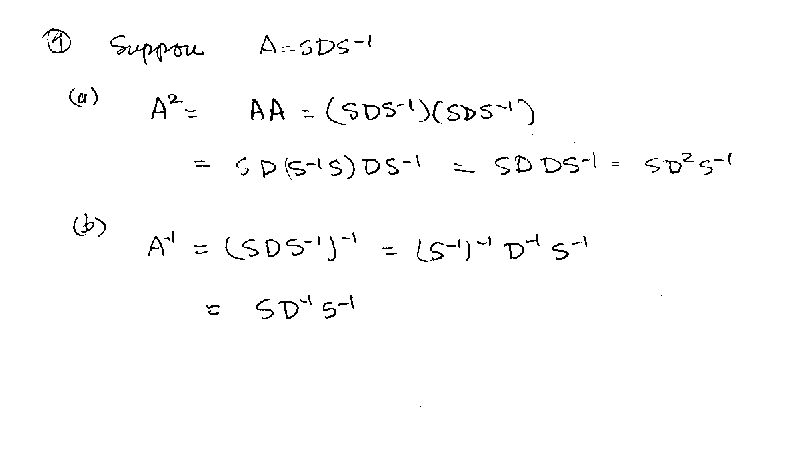 ① Suppose A = SDS⁻¹
(a) A² = AA = (SDS⁻¹)(SDS⁻¹)
= SD(S⁻¹S)DS⁻¹ = SDDS⁻¹ = SD²S⁻¹
(b) A⁻¹ = (SDS⁻¹)⁻¹ = (S⁻¹)⁻¹ D⁻¹ S⁻¹
= SD⁻¹S⁻¹